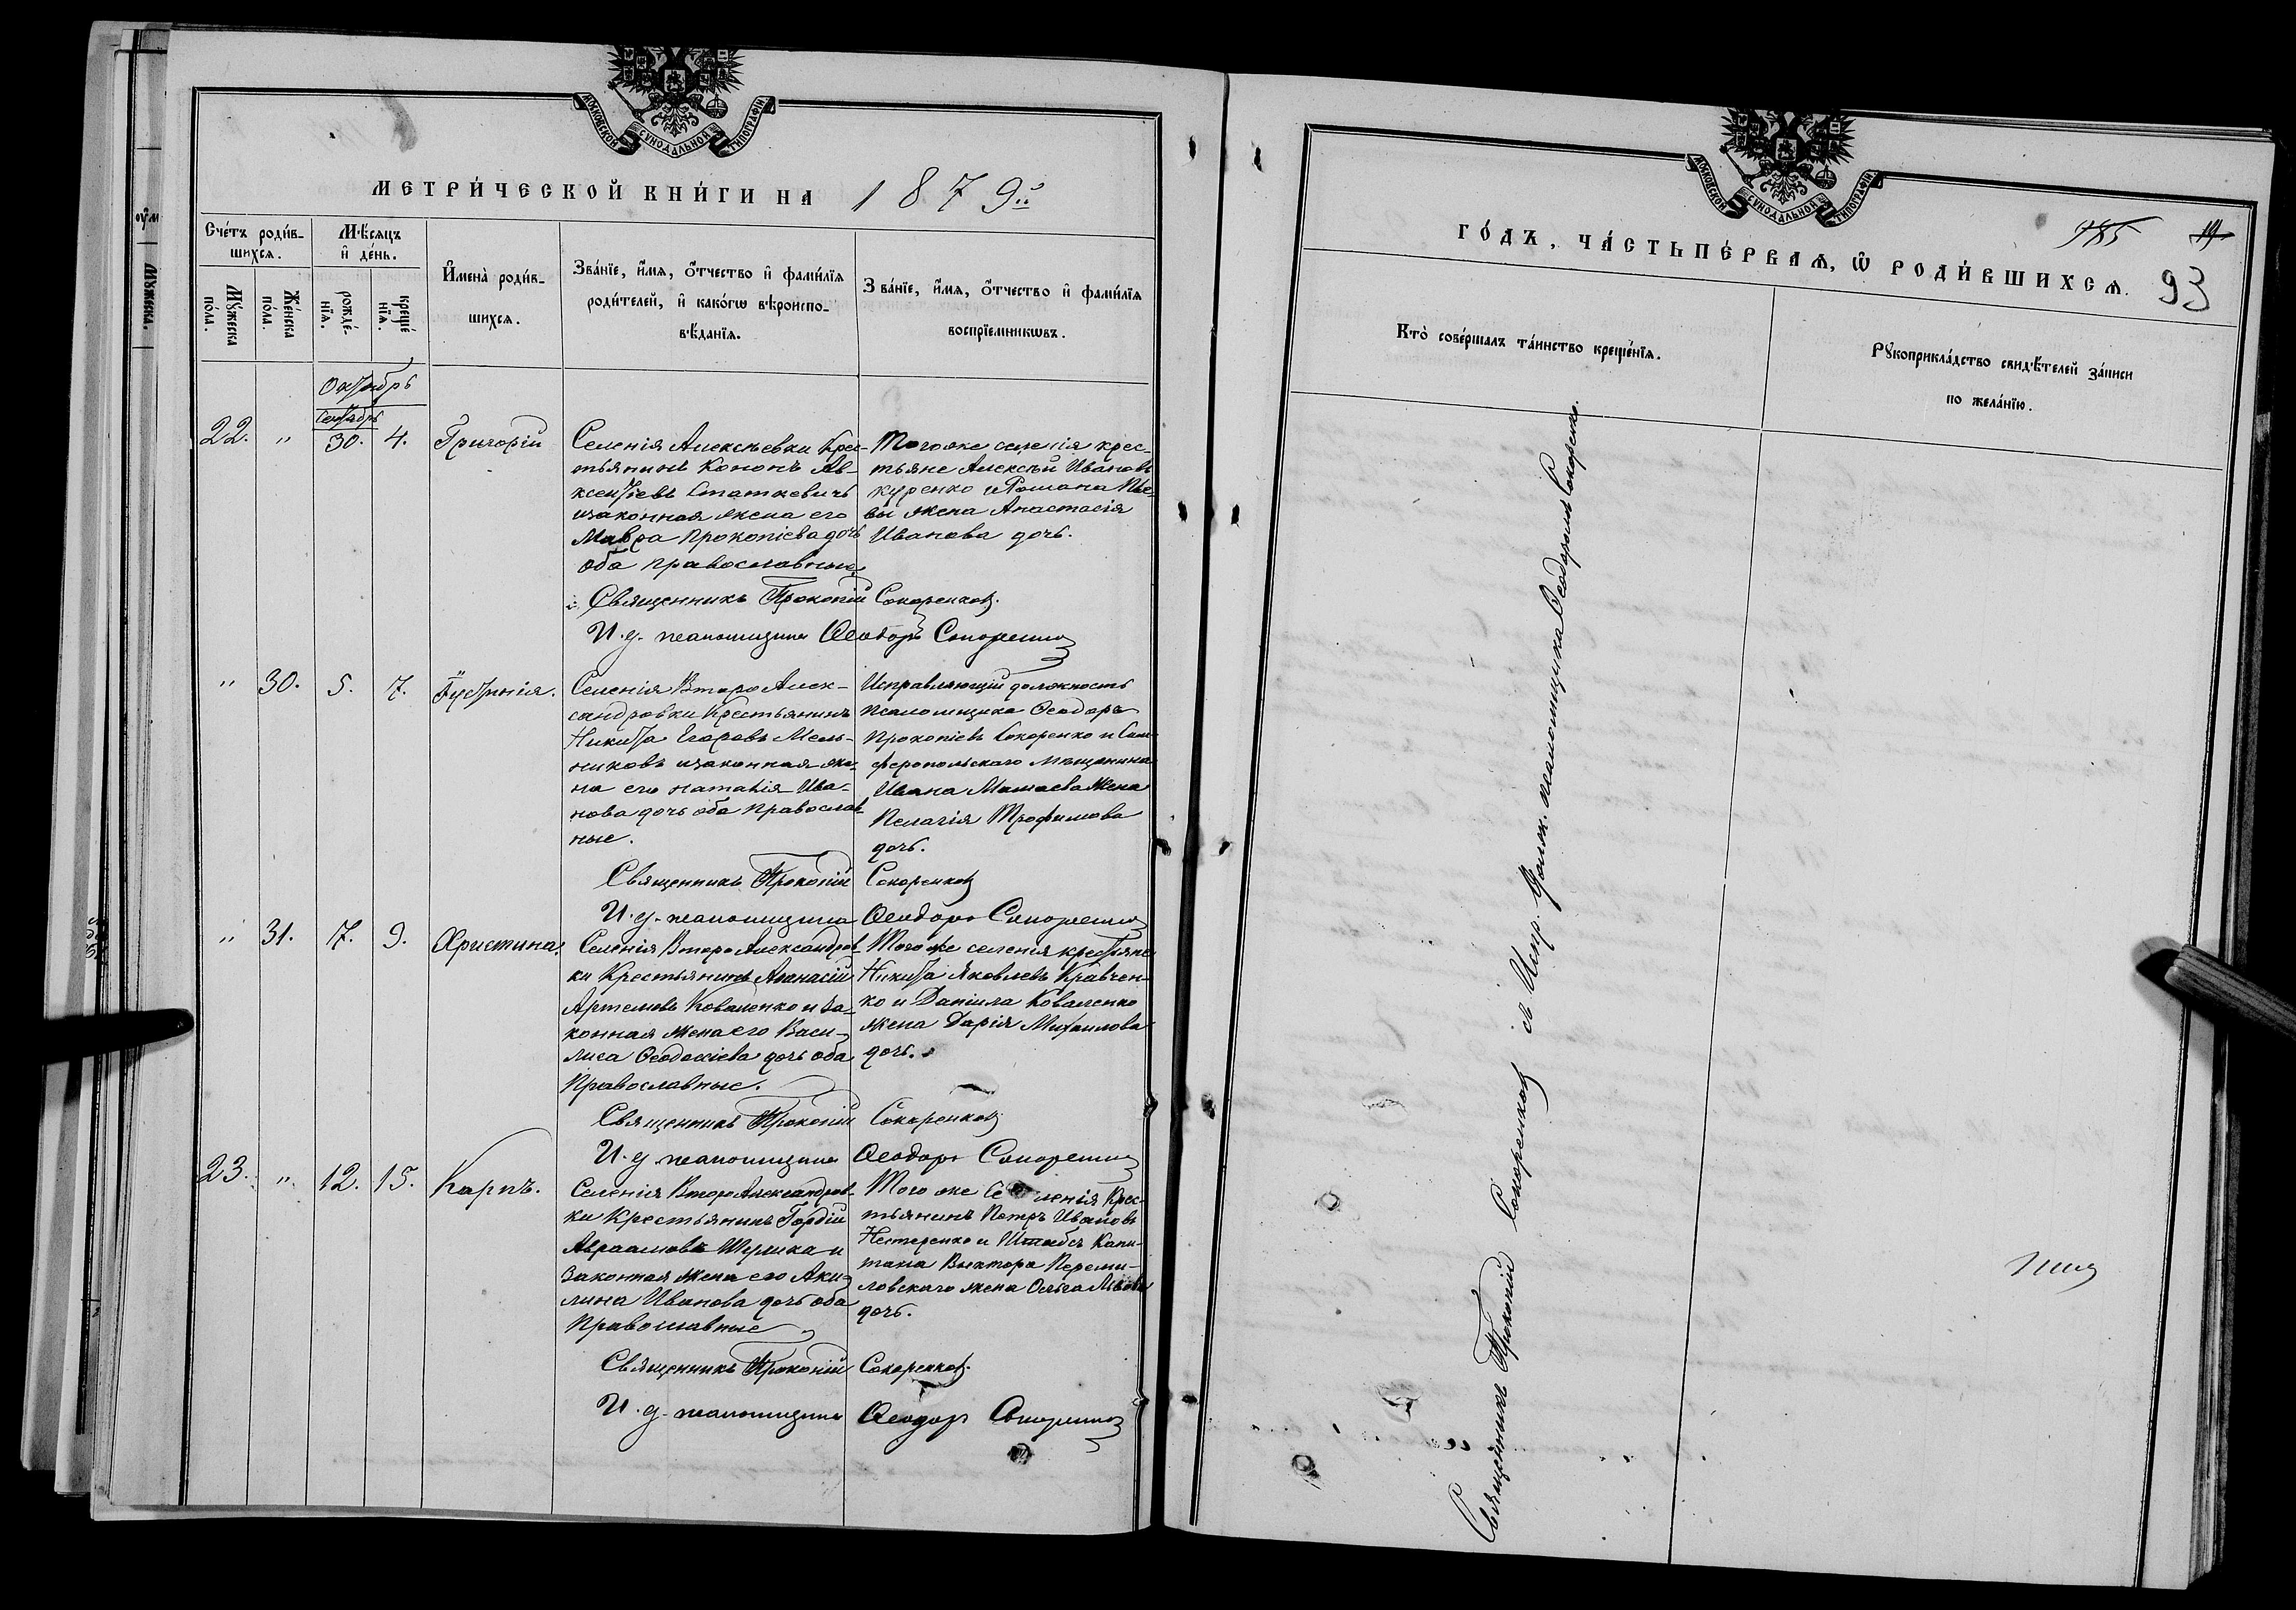 МОСКОВСКОЙ СѴНОДАЛЬНОЙ ТИПОГРАФІИ
МЕТРИ́ЧЕСКОЙ КНИ́ГИ НА 1879й
Сче́тъ роди́в-
шихся.
Мѣ́сяцъ
и҆ де́нь.
Мꙋ́жеска
по́ла.
Же́нска
по́ла.
рожде́-
нїя.
креще́
нїя.
И҆мена̀ роди́в-
шихся.
Зва́нїе, и҆́мя, ѻ҆́тчество и҆ фами́лїя
роди́телей, и҆ како́гѡ вѣроиспо-
вѣ́данїя.
Зва́нїе, и҆́мя, ѻ҆́тчество и҆ фами́лїя
воспрїе́мникѡвъ.
Октябрь
Сентябрь
22. " 30. 4. Григорій
Селенія Алексѣевки Крес-
тьянинъ Кононъ Ав-
ксентіевъ Статкевичъ
изаконная жена его
Мавра Прокопіева дочь
оба православные
Тогоже селенія крес-
тьяне Алексѣй Ивановъ
куренко и Романа
вы жена Анастасія
Иванова дочь.
Священникъ Прокопій Сокоренковъ.
И. д. псаломщика Ѳеодоръ Сокоренко
" 30. 5. 7. Густинія.
Селенія Второ Алек-
сандровки Крестьянинъ
Никита Егоровъ Мель-
никовъ изаконная же-
на его Наталія Ива-
нова дочь оба Православ-
ные.
Исправляющій должность
Псаломщика Ѳеодоръ
Прокопіевъ Сокоренко и Сим-
феропольскаго Мѣщанина
Ивана Мамаева Жена
Пелагія Трофимова
дочь.
Священникъ Прокопій Сокоренковъ
И. д. псаломщика Ѳеодоръ Сокоренко
" 31. 7. 9. Христина.
Селенія Второ Александров-
ки Крестьянинъ Аѳанасій
Артемовъ Коваленко и за-
конная жена его Васи-
лиса Ѳеодосіева дочь оба
Православные.
Того же селенія крестьяне
Никита Яковлевъ Кравчен-
ко и Даніила Коваленко
жена Дарія Михаилова
дочь.
Священникъ Прокопій Сокоренковъ
И. д. псаломщика Ѳеодоръ Сокоренко
23. " 12. 15. Карпъ.
Селенія Второ Александров-
ки Крестьянинъ Гордій
Авраамовъ Шулика и
Законная жена его Аку-
лина Иванова дочь оба
Православные
Того же Селенія Крес-
тьянинъ Петръ Ивановъ
Нестеренко и Штабсъ Капи-
тана Виктора Переми-
ловскаго жена Ольга Львова
дочь.
Священникъ Прокопій Сокоренковъ.
И. д. псаломщика Ѳеодоръ Сокоренко
МОСКОВСКОЙ СѴНОДАЛЬНОЙ ТИПОГРАФІИ
185 19
ГО́ДЪ, ЧА́СТЬ ПЕ́РВАЯ, Ѡ҆ РОДИ́ВШИХСЯ.
93
Кто̀ соверша́лъ та́инство креще́нїя.
Рꙋкоприкла́дство свидѣ́телей за́писи
по жела́нїю.
Священникъ Прокопій Сокоренковъ съ Испр. должн. псаломщика Ѳеодоромъ Сокоренко.